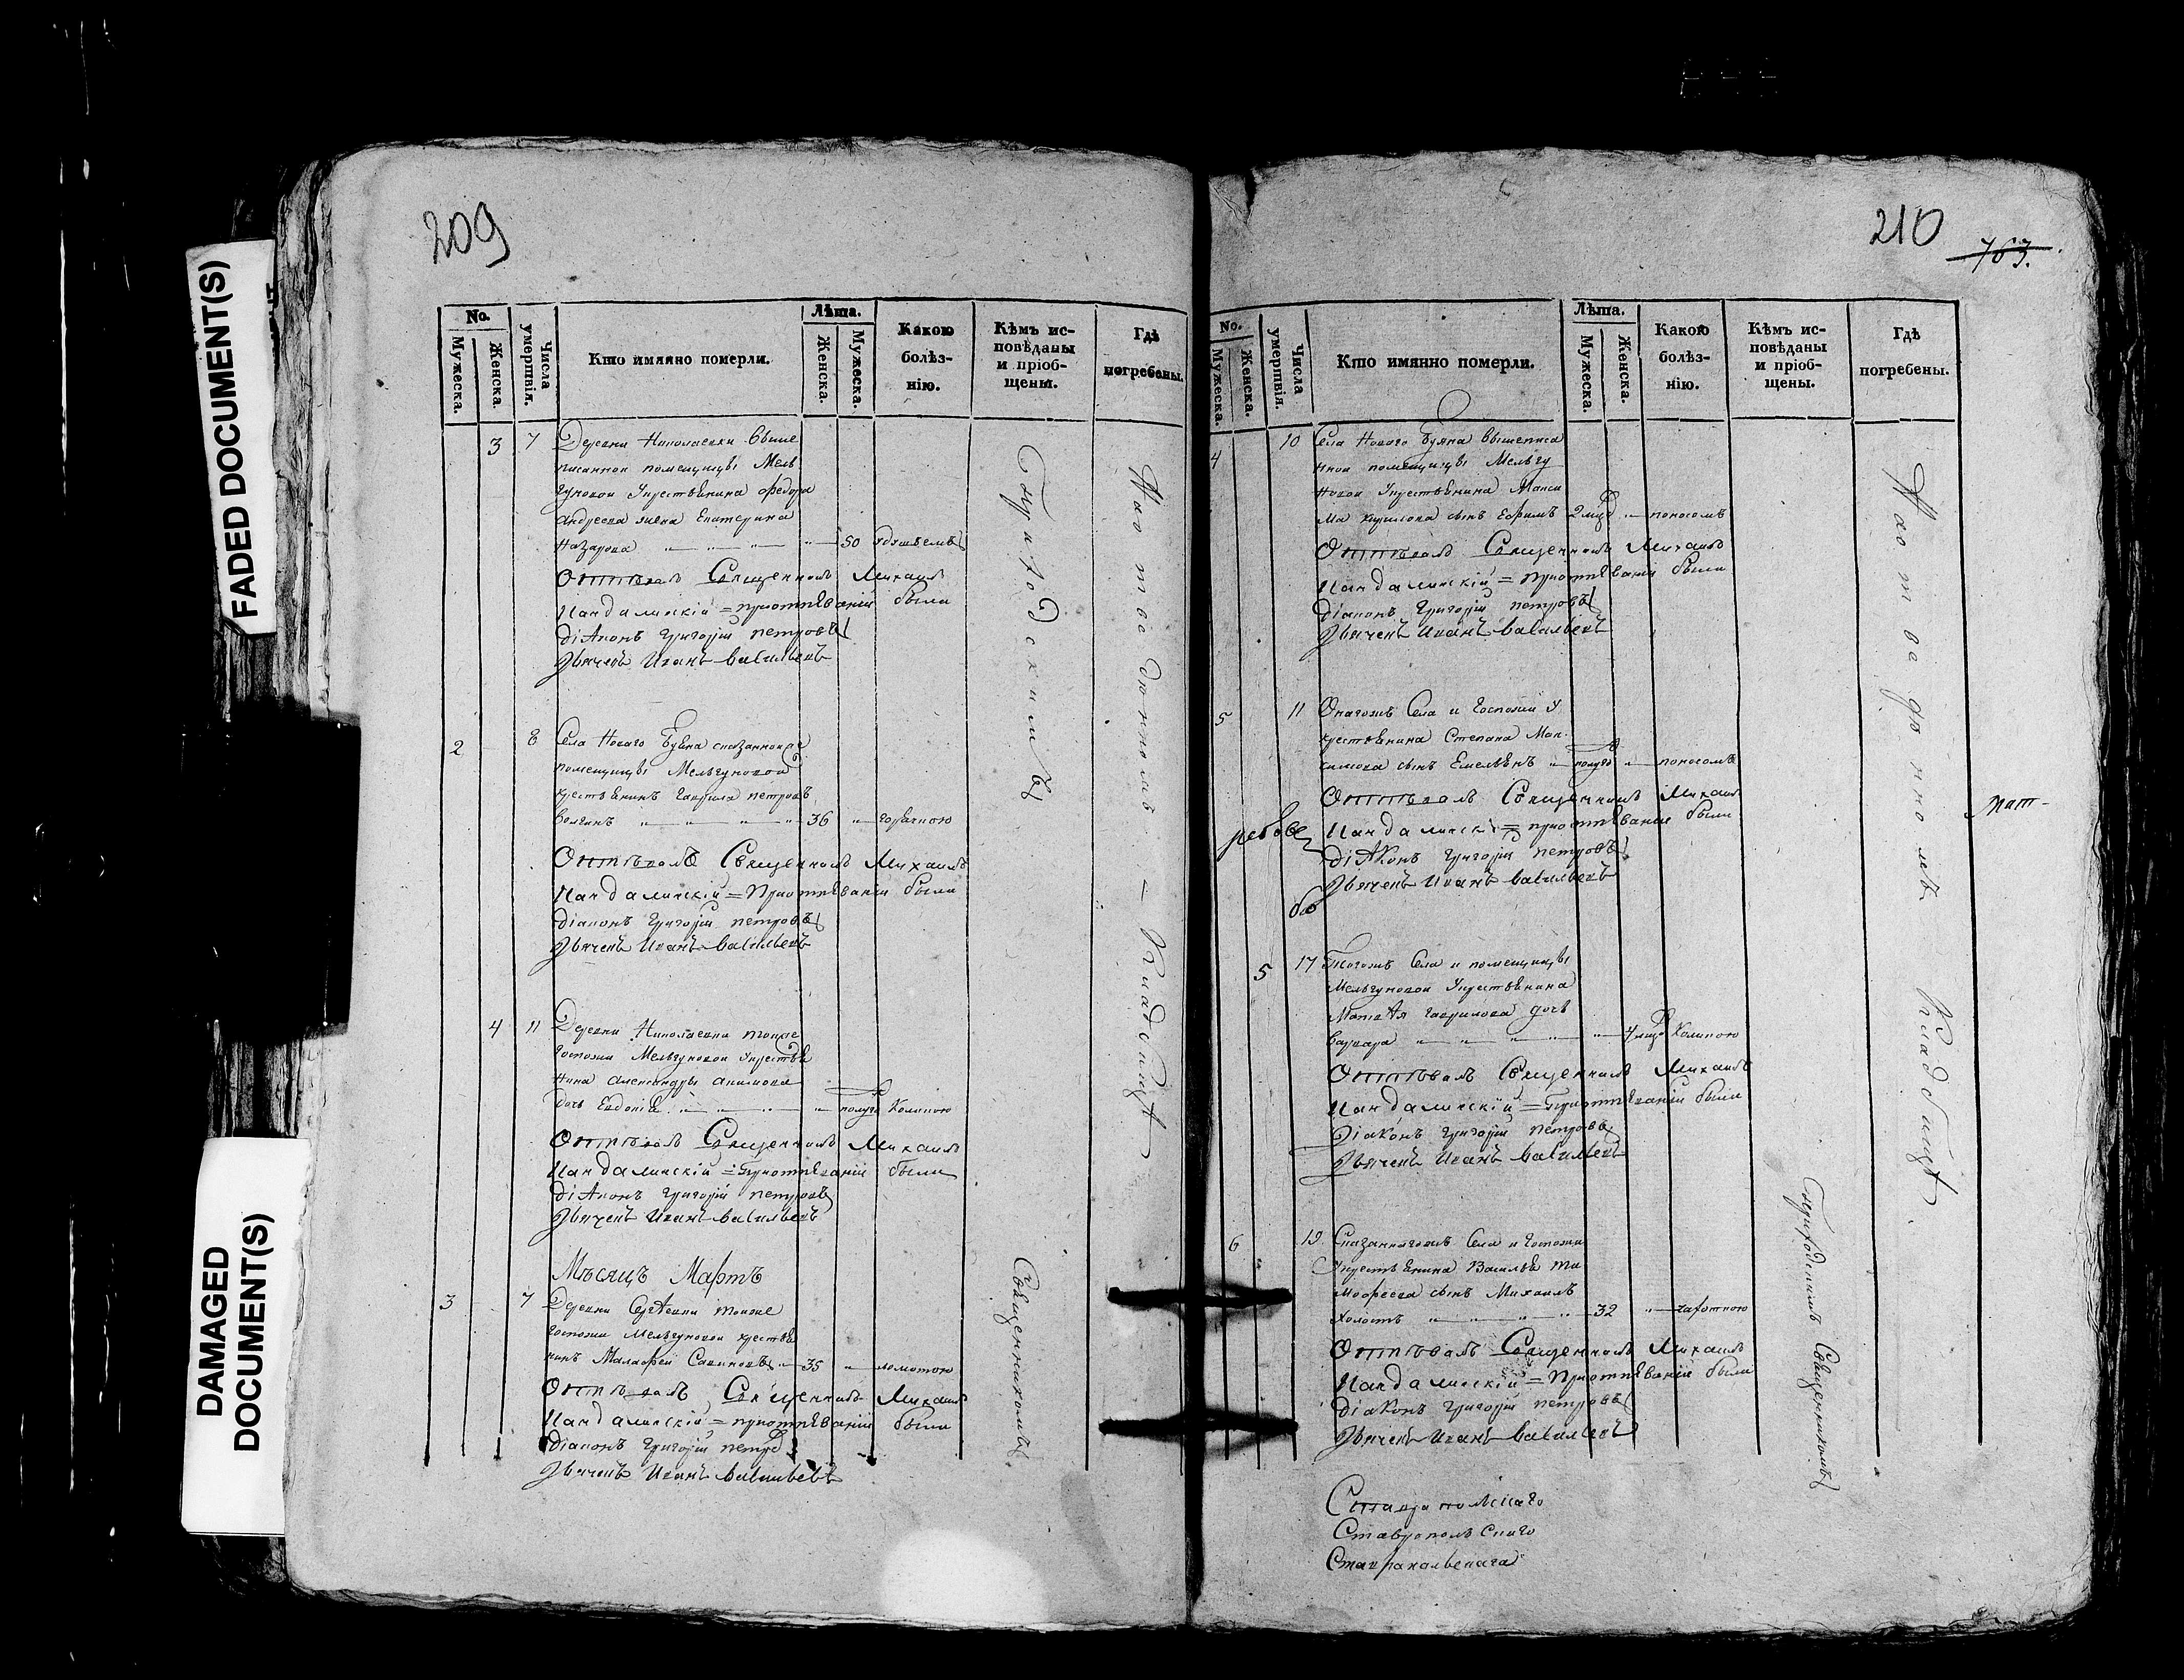 FADED DOCUMENT(S)
DAMAGED
DOCUMENT(S)
209
No.
Мужеска.
Женска.
Числа
умертвія.
Кто имянно померли.
Лѣта.
Женска.
Мужеска.
Какою
болѣз-
нію.
Кѣмъ ис-
повѣданы
и пріоб-
щены.
Гдѣ
погребены.
3 7 Деревни Николаевки выше
писанной помещицы Мель
гуновой Крестьянина Федора
Андреева жена Екатерина
Назарова 50
Отпѣвалъ Священникъ Михаилъ
Пандалинскій = приотпѣваніи были
діаконъ Григорій петровъ
Дьячекъ Иванъ Васильевъ
2 8 Села Новаго Буяна сказанной
помещицы Мельгуновой
крестьянинъ Гаврила петровъ
Волгинъ 36 горячкою
Отпѣвалъ Священникъ Михаилъ
Пандалинскій = Приотпѣваніи были
діаконъ Григорій петровъ
Дьячекъ Иванъ Васильевъ
4 11 Деревни Николаевки тойже
Госпожи Мельгуновой Крестья
нина Александры Акимова
дочь Евдокія полуго
Отпѣвалъ Священникъ Михаилъ
Пандалинскій = Приотпѣваніи были
діаконъ Григорій петровъ
Дьячекъ Иванъ Васильевъ
Мѣсяцъ Мартъ
3 7 Деревни Сергѣевки тойже
Госпожи Мельгуновой крестья
нинъ Малафей Савиновъ 35 ломотою
Отпѣвалъ Священникъ Михаилъ
Пандалинскій = приотпѣваніи были
діаконъ Григорій петро
Дьячекъ Иванъ Васильевъ
Священникомъ
Кладбищѣ
210
763.
No.
Мужеска.
Женска.
Числа
умертвія.
Кто имянно померли.
Лѣта.
Мужеска.
Женска.
Какою
болѣз-
нію.
Кѣмъ ис-
повѣданы
и пріоб-
щены.
Гдѣ
погребены.
4 10 Села Новаго Буяна вышеписа
нной помещицы Мельгу
новой Крестьянина Макси
ма Кирилова сынъ Ефримъ 2 поносомъ
Отпѣвалъ Священникъ Михаилъ
Пандалинскій = приотпѣваніи были
діаконъ Григорій петровъ
Дьячекъ Иванъ Васильевъ
5 11 Онагожъ Села и Госпожи
крестьянина Степана Мак-
симова сынъ Емельянъ полуго поносомъ
Отпѣвалъ Священникъ Михаилъ
Пандалинскій = приотпѣваніи были
діаконъ Григорій петровъ
Дьячекъ Иванъ Васильевъ
5 17 Тогожъ Села и помещицы
Мельгуновой Крестьянина
Матвѣя Гаврилова дочь
Варвара 4
Отпѣвалъ Священникъ Михаилъ
Пандалинскій = Приотпѣваніи были
Діаконъ Григорій петровъ
Дьячекъ Иванъ Васильевъ
6 19 Сказанногожъ Села и Госпожи
Крестьянина Василья Ти
мофеева сынъ Михаилъ
Холостъ 32 чахоткою
Отпѣвалъ Священникъ Михаилъ
Пандалинскій = Приотпѣваніи были
Діаконъ Григорій петровъ
Дьячекъ Иванъ Васильевъ
Священникомъ
Кладбищѣ
Ставропольскаго
Ставропольскаго